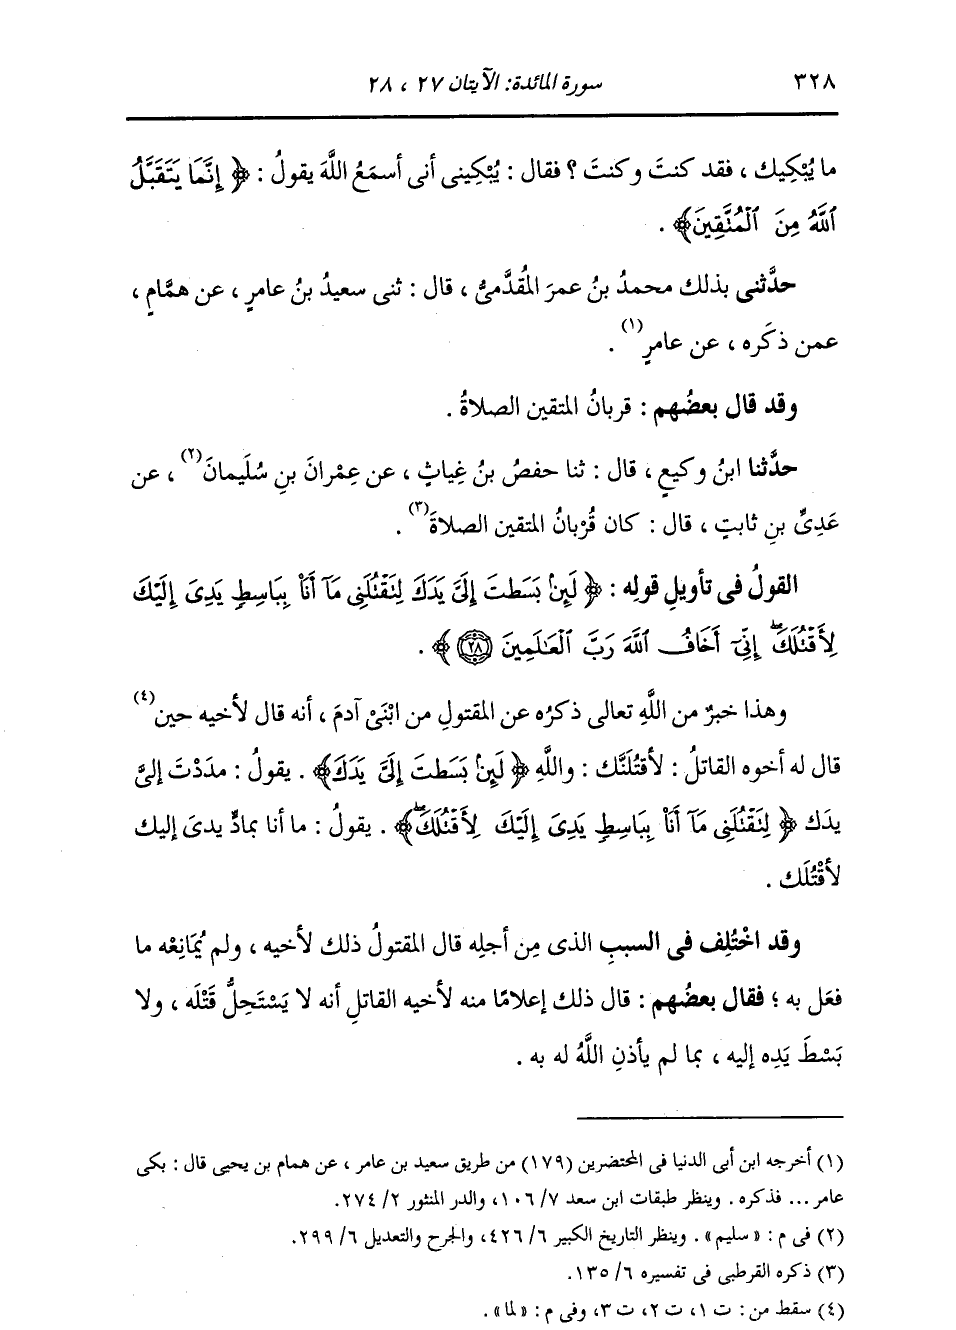 ٣٢٨ سورة المائدة: الآيتان ٢٧ ، ٢٨
ما يُبْكِيك ، فقد كنتَ وكنتَ ؟ فقال : يُبْكِينى أنى أسمَعُ اللَّهَ يقولُ : ﴿ إِنَّمَا يَتَقَبَّلُ
ٱللَّهُ مِنَ ٱلْمُنَّقِينَ﴾ .
حدَّثنى بذلك محمدُ بنُ عمرَ المُقدَّمىُّ ، قال : ثنى سعيدُ بنُ عامرٍ ، عن همَّامٍ ،
عمن ذكَره ، عن عامرٍ(١) .
وقد قال بعضُهم : قربانُ المتقين الصلاةُ .
حدَّثنا ابنُ وكيعٍ ، قال : ثنا حفصُ بنُ غِياثٍ ، عن عِمْرانَ بنِ سُلَيمانَ(٢) ، عن
عَدِىِّ بنِ ثابتٍ ، قال : كان قُرْبانُ المتقين الصلاةَ(٣) .
القولُ فى تأويلِ قولِه : ﴿ لَئِنۢ بَسَطتَ إِلَىَّ يَدَكَ لِتَقْتُلَنِى مَآ أَنَا۠ بِبَاسِطٍ يَدِىَ إِلَيْكَ
لِأَقْتُلَكَ ۖ إِنِّىٓ أَخَافُ ٱللَّهَ رَبَّ ٱلْعَـٰلَمِينَ ٢٨ ﴾ .
وهذا خبرٌ من اللَّهِ تعالى ذكرُه عن المقتولِ من ابْنَىْ آدمَ ، أنه قال لأخيه حين(٤)
قال له أخوه القاتلُ : لأقتُلَنَّك : واللَّهِ ﴿ لَئِنۢ بَسَطتَ إِلَىَّ يَدَكَ﴾ . يقولُ : مدَدْتَ إلىَّ
يدَك ﴿ لِتَقْتُلَنِى مَآ أَنَا۠ بِبَاسِطٍ يَدِىَ إِلَيْكَ لِأَقْتُلَكَ ۖ﴾ . يقولُ : ما أنا بمادٍّ يدىَ إليك
لأقْتُلَك .
وقد اخْتُلِف فى السببِ الذى مِن أجلِه قال المقتولُ ذلك لأخيه ، ولم يُمَانِعْه ما
فعَل به ؛ فقال بعضُهم : قال ذلك إعلامًا منه لأخيه القاتلِ أنه لا يَسْتَحِلُّ قَتْلَه ، ولا
بَسْطَ يَدِه إليه ، بما لم يأذنِ اللَّهُ له به .
(١) أخرجه ابن أبى الدنيا فى المحتضرين (١٧٩) من طريق سعيد بن عامر ، عن همام بن يحيى قال : بكى
عامر ... فذكره . وينظر طبقات ابن سعد ٧/ ١٠٦، والدر المنثور ٢/ ٢٧٤.
(٢) فى م : «سليم» . وينظر التاريخ الكبير ٦/ ٤٢٦، والجرح والتعديل ٦/ ٢٩٩.
(٣) ذكره القرطبى فى تفسيره ٦/ ١٣٥.
(٤) سقط من : ت ١، ت ٢، ت ٣، وفى م : «لما» .